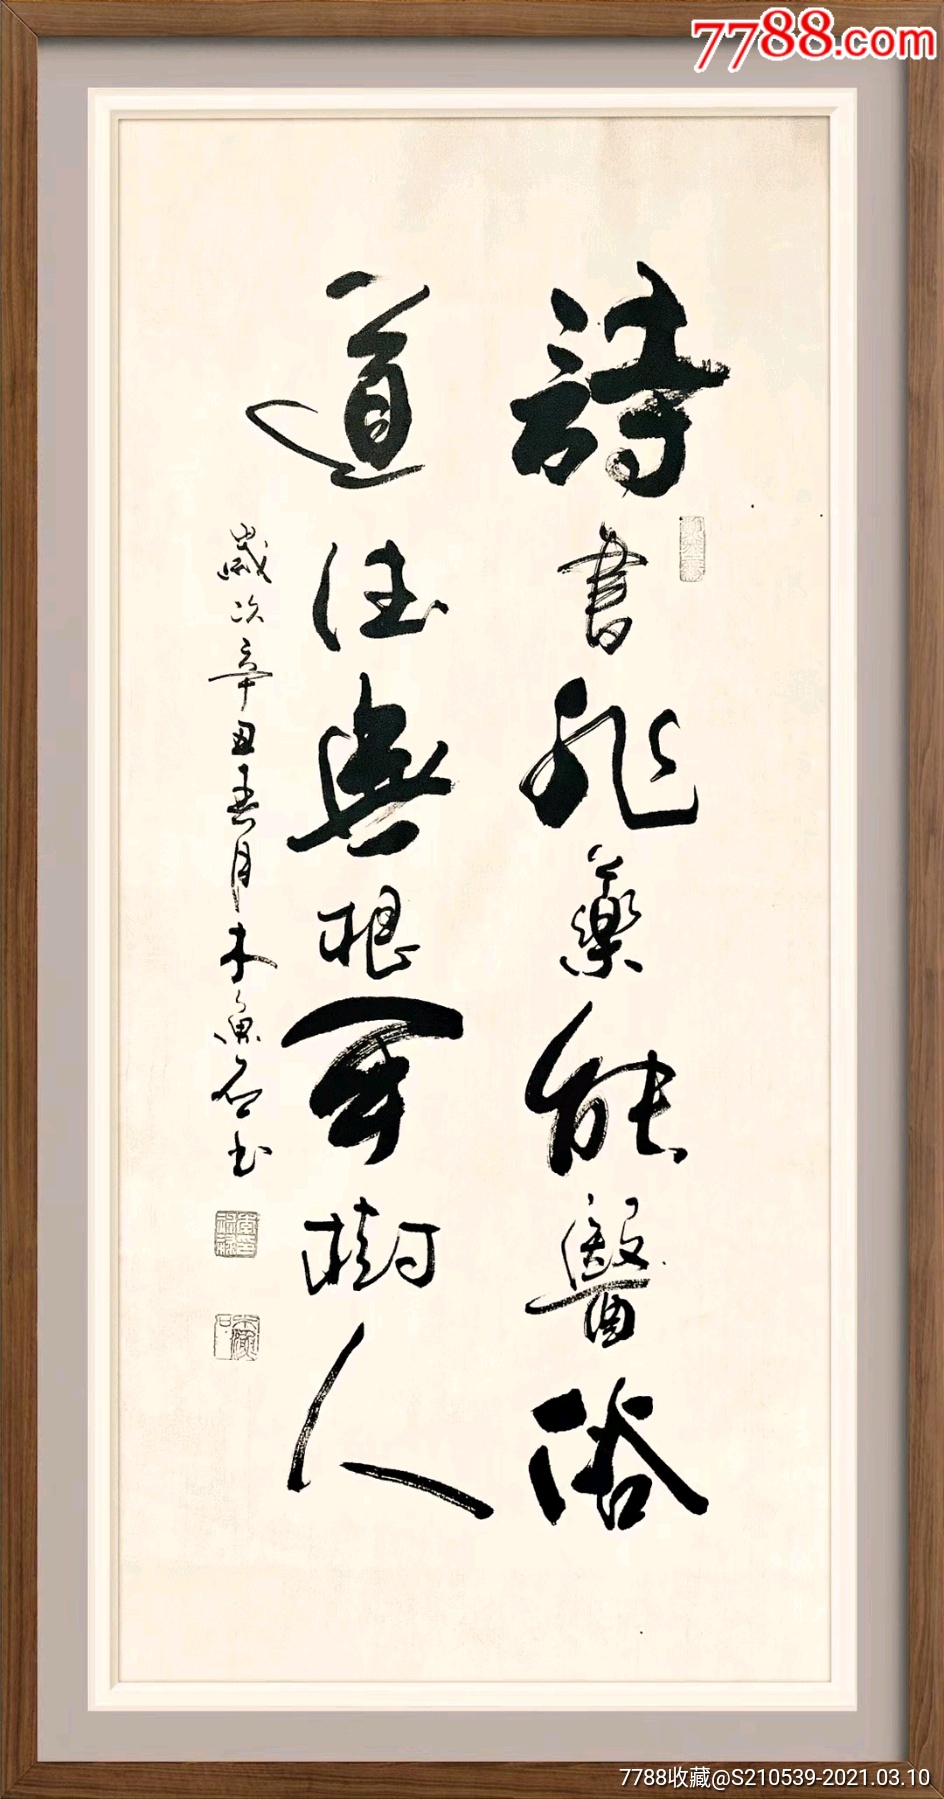 7788.com
詩書非藥能醫俗
道德無根可樹人
歲次辛丑春月木魚石书
7788收藏@S210539-2021.03.10